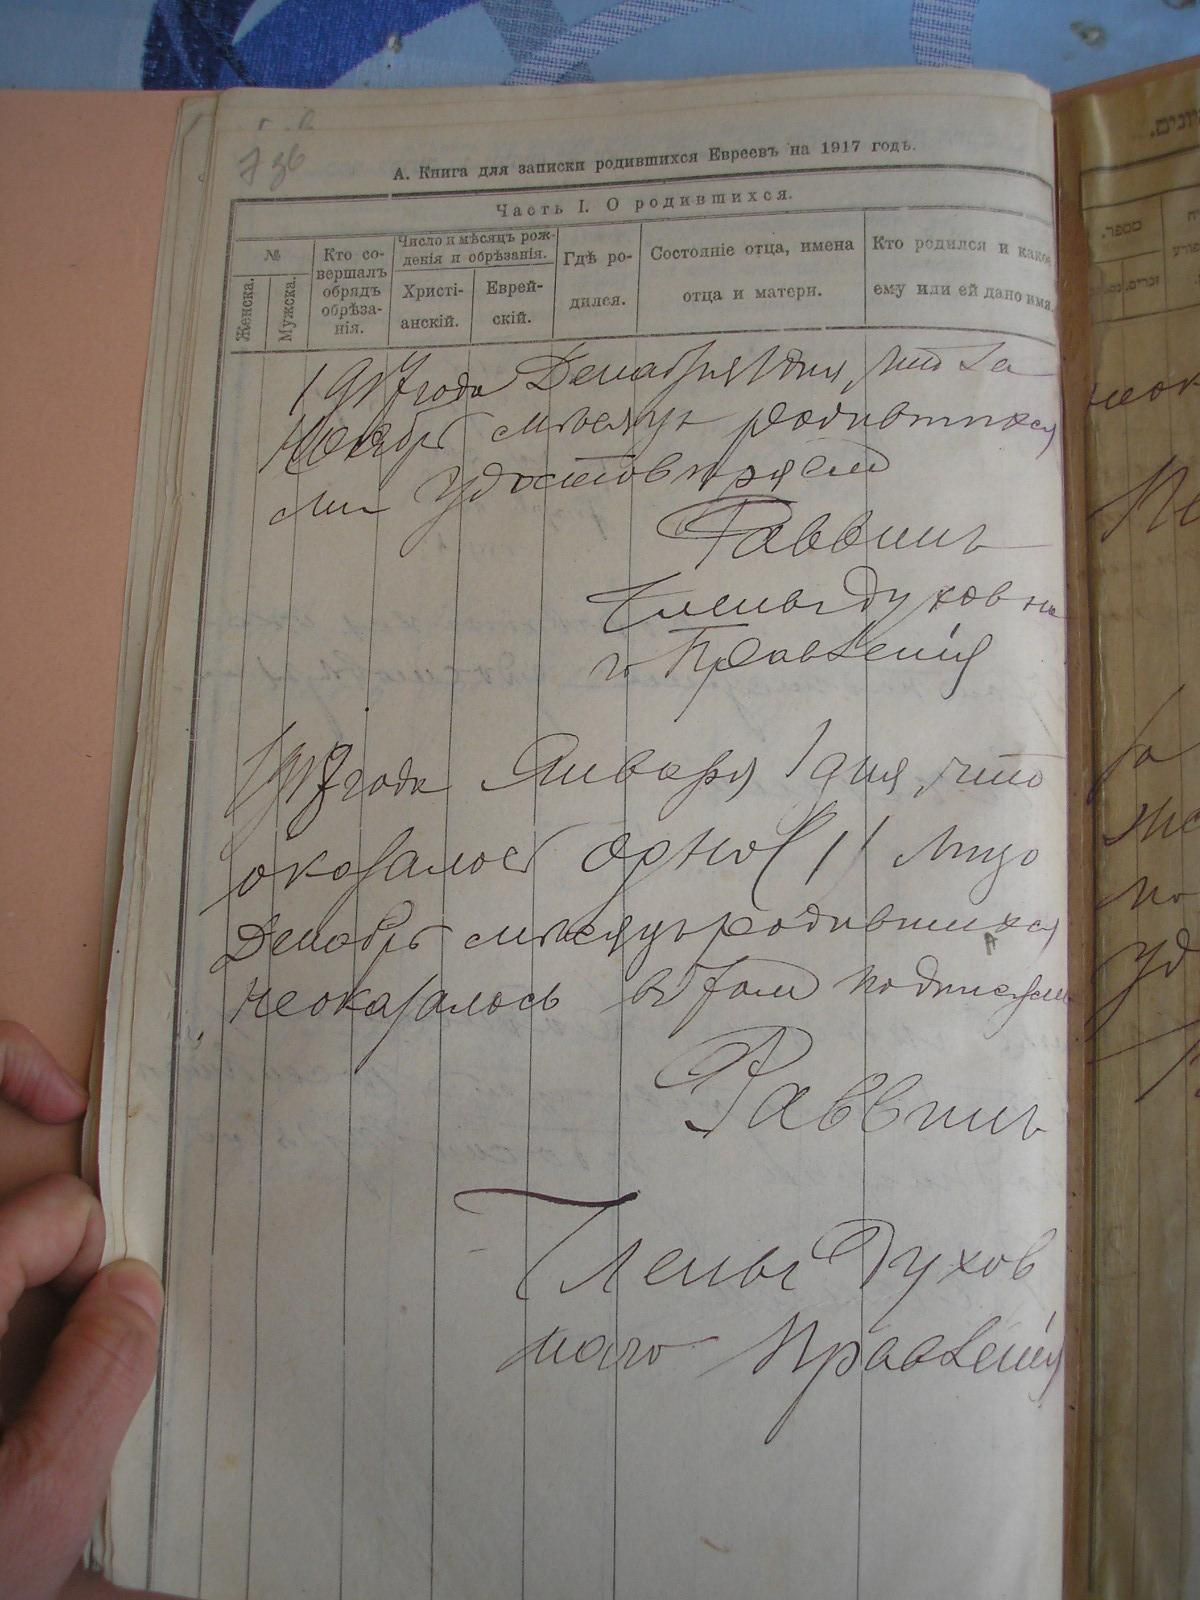 736
А. Книга для записки родившихся Евреевъ на 1917 годъ.
Часть I. О родившихся.
№
Женска.
Мужска.
Кто со-
вершалъ
обрядъ
обрѣза-
нія.
Число и мѣсяцъ рож-
денія и обрѣзанія.
Христі-
анскій.
Еврей-
скій.
Гдѣ ро-
дился.
Состояніе отца, имена
отца и матери.
Кто родился и какое
ему или ей дано имя.
1917 года Декабря 1 дня, что за
Ноябрь мѣсяцъ родившихся
удостовѣряемъ
Раввинъ
Члены Духовна
го Правленія
года Января 1 дня, что
оказалось одно (1) лицо
Декабрь мѣсяцъ родившихся
неоказалось въ томъ подписуемъ
Раввинъ
Члены Духов
наго Правленія